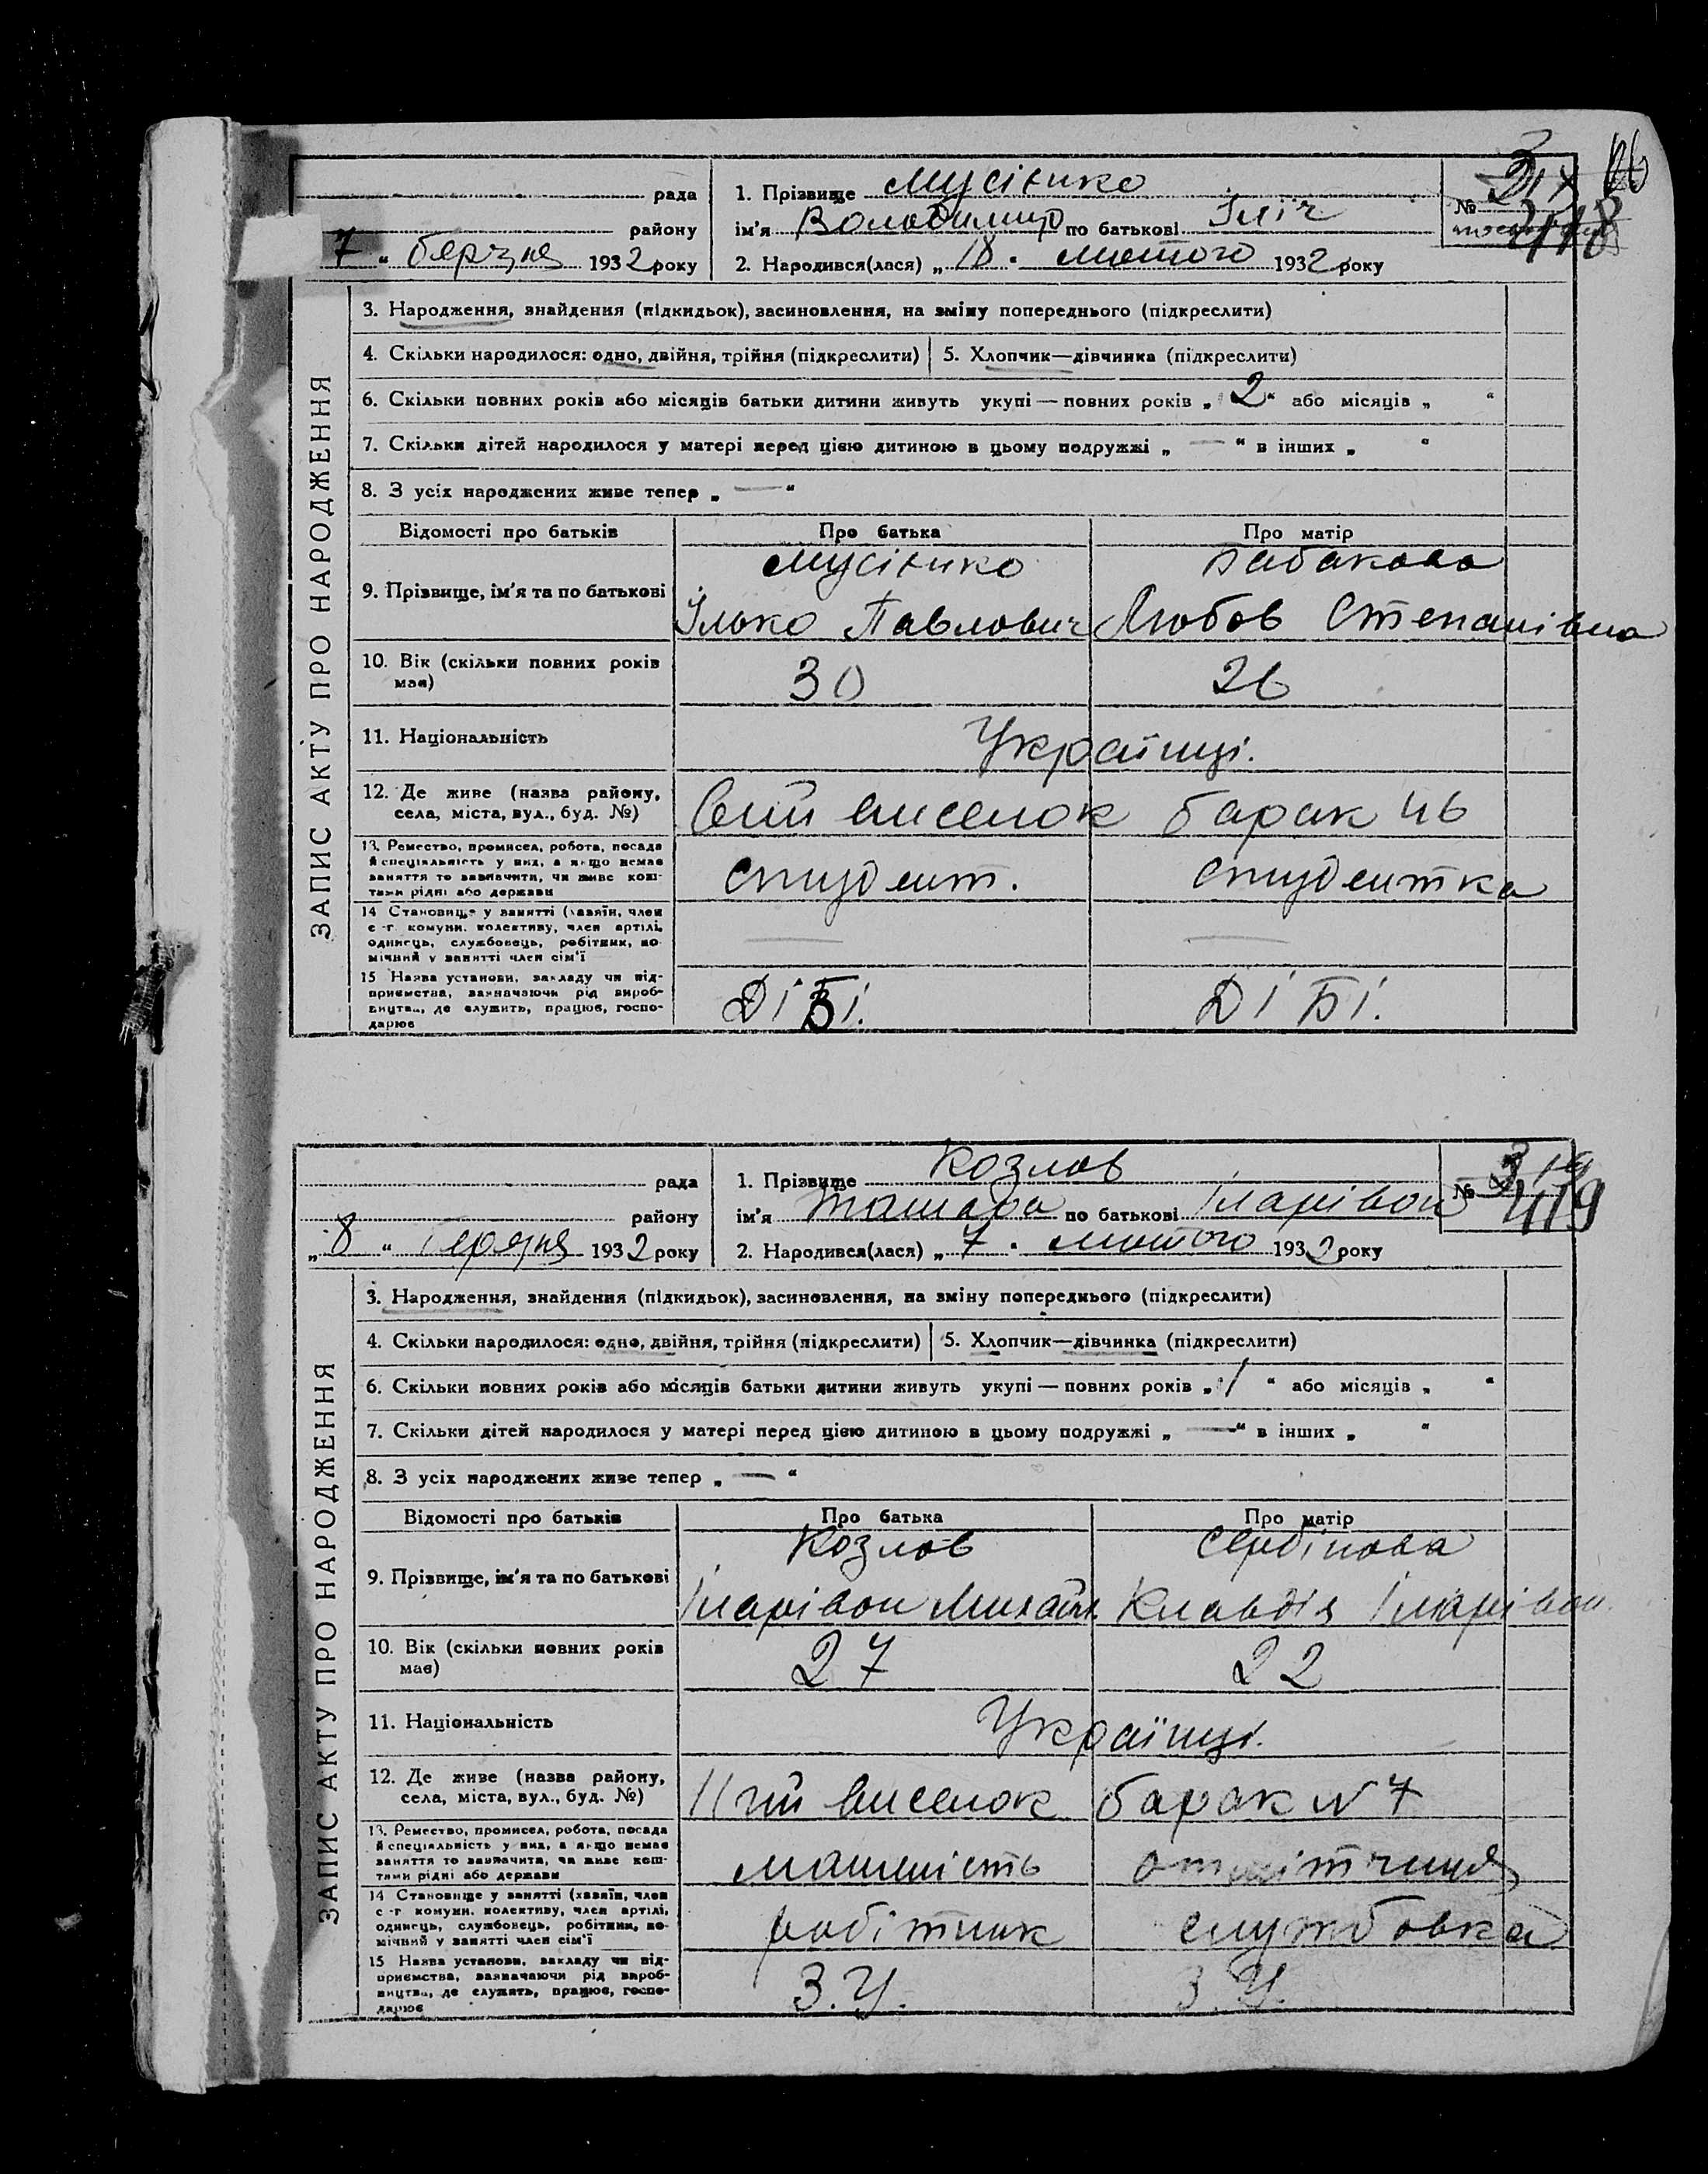 рада
району
7 " березня 1932 року
1. Прізвище Мусієнко
ім'я Володимир по батькові Іліч
2. Народився(лася) „ 18 " лютого 1932 року
№ 418
ЗАПИС АКТУ ПРО НАРОДЖЕННЯ
3. Народження, знайдення (підкидьок), засиновлення, на зміну попереднього (підкреслити)
4. Скільки народилося: одно, двійня, трійня (підкреслити) 5. Хлопчик—дівчинка (підкреслити)
6. Скільки повних років або місяців батьки дитини живуть укупі — повних років „ 2 " або місяців „ "
7. Скільки дітей народилося у матері перед цією дитиною в цьому подружжі „ — " в інших „ "
8. З усіх народжених живе тепер „ — "
Відомості про батьків Про батька Про матір
9. Прізвище, ім'я та по батькові
Мусієнко
Ілько Павлович
Любов Степанівна
10. Вік (скільки повних років має) 30 26
11. Національність Українці.
12. Де живе (назва району, села, міста, вул., буд. №) виселок барак 46
13. Ремество, промисел, робота, посада й спеціяльність у них, а якщо немає заняття то зазначити, чи живе коштами рідні або держави
студент. студентка
14 Становище у занятті (хазяїн, член с.-г. комуни, колективу, член артілі, одинець, службовець, робітник, помічний у занятті член сім'ї — —
15 Назва установи, закладу чи підприємства, зазначаючи рід виробництва, де служить, працює, господарює
ДІБІ. ДІБІ.
рада
району
„ 8 " березня 1932 року
1. Прізвище Козлов
ім'я Тамара по батькові Іларівон
2. Народився(лася) „ 7 " лютого 1932 року
№ 419
ЗАПИС АКТУ ПРО НАРОДЖЕННЯ
3. Народження, знайдення (підкидьок), засиновлення, на зміну попереднього (підкреслити)
4. Скільки народилося: одно, двійня, трійня (підкреслити) 5. Хлопчик—дівчинка (підкреслити)
6. Скільки повних років або місяців батьки дитини живуть укупі — повних років „ 1 " або місяців „ "
7. Скільки дітей народилося у матері перед цією дитиною в цьому подружжі „ — " в інших „ "
8. З усіх народжених живе тепер „ — "
Відомості про батьків Про батька Про матір
9. Прізвище, ім'я та по батькові
Козлов
Іларівон Михайл.
Сербінова
Клавдія Іларівон.
10. Вік (скільки повних років має) 27 22
11. Національність Українці.
12. Де живе (назва району, села, міста, вул., буд. №) виселок барак № 7
13. Ремество, промисел, робота, посада й спеціяльність у них, а якщо немає заняття то зазначити, чи живе коштами рідні або держави
машиність
14 Становище у занятті (хазяїн, член с.-г. комуни, колективу, член артілі, одинець, службовець, робітник, помічний у занятті член сім'ї
робітник службовка
15 Назва установи, закладу чи підприємства, зазначаючи рід виробництва, де служить, працює, господарює
З.У. З.У.